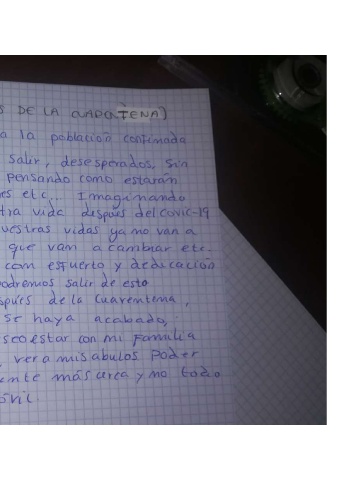 DE LA CUARENTENA)
a la población confinada
salir, desesperados, sin
pensando como estarán
es etc.. Imaginando
tra vida despúes del covic-19
uestras vidas ya no van a
que van a cambiar etc.
com esfuerto y dedicación
podremos salir de esto
spués de la cuarentena,
se haya acabado,
seo estar con mi Familia
ver a mis abulos Poder
ente más cerca y no todo
óvil